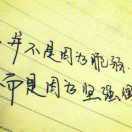 并不是因为脆弱
而是因为坚强